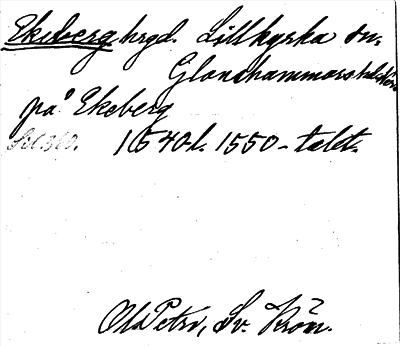 Ekeberg hrgd. Lillkyrka sn.
Glanshammars
på Ekeberg
1540 l. 1550-talet.
Ol. Petri, Sv. Krön.